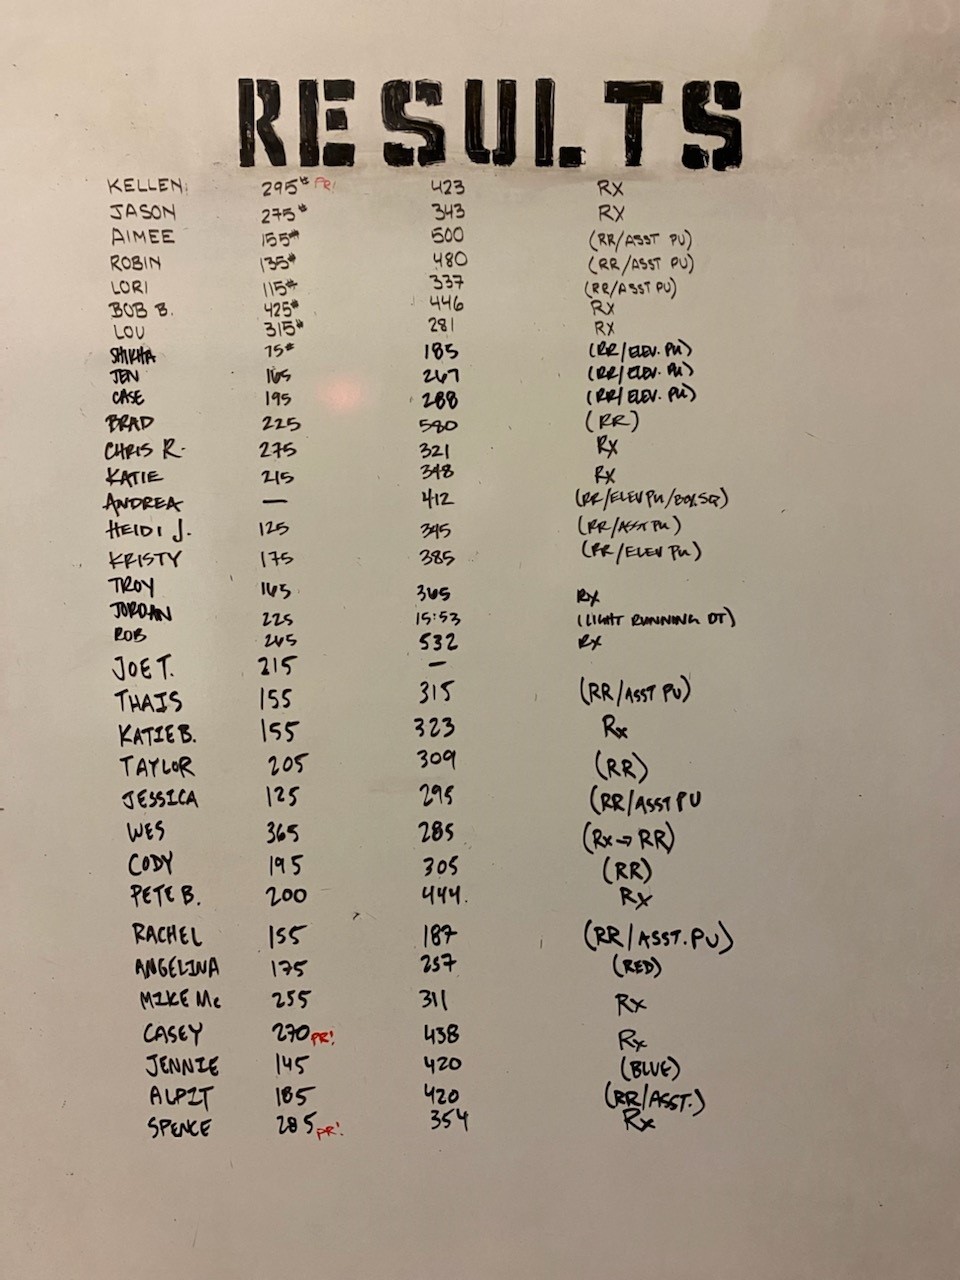 RESULTS
KELLEN 295# PR! 423 RX
JASON 275# 343 RX
AIMEE 155# 500 (RR/ASST PU)
ROBIN 135# 480 (RR/ASST PU)
LORI 115# 337 (RR/ASST PU)
BOB B. 425# 446 RX
LOU 315# 281 RX
SHIKHA 75# 185 (RR/ELEV. PU)
JEN 165 267 (RR/ELEV. PU)
CASE 195 288 (RR/ELEV. PU)
BRAD 225 580 (RR)
CHRIS R. 275 321 Rx
KATIE 215 348 Rx
ANDREA — 412 (RR/ELEV PU/BOX SQ)
HEIDI J. 125 395 (RR/ASST PU)
KRISTY 175 385 (RR/ELEV PU)
TROY 165 365 Rx
JORDAN 225 15:53 (LIGHT RUNNING DT)
ROB 265 532 Rx
JOE T. 215 —
THAIS 155 315 (RR/ASST PU)
KATIE B. 155 323 Rx
TAYLOR 205 309 (RR)
JESSICA 125 295 (RR/ASST PU
WES 365 285 (Rx→RR)
CODY 195 305 (RR)
PETE B. 200 444. Rx
RACHEL 155 187 (RR/ASST. PU)
ANGELINA 175 257 (RED)
MIKE Mc 255 311 Rx
CASEY 270 PR! 438 Rx
JENNIE 145 420 (BLUE)
ALPIT 185 420 (RR/ASST.)
SPENCE 285 PR! 354 Rx